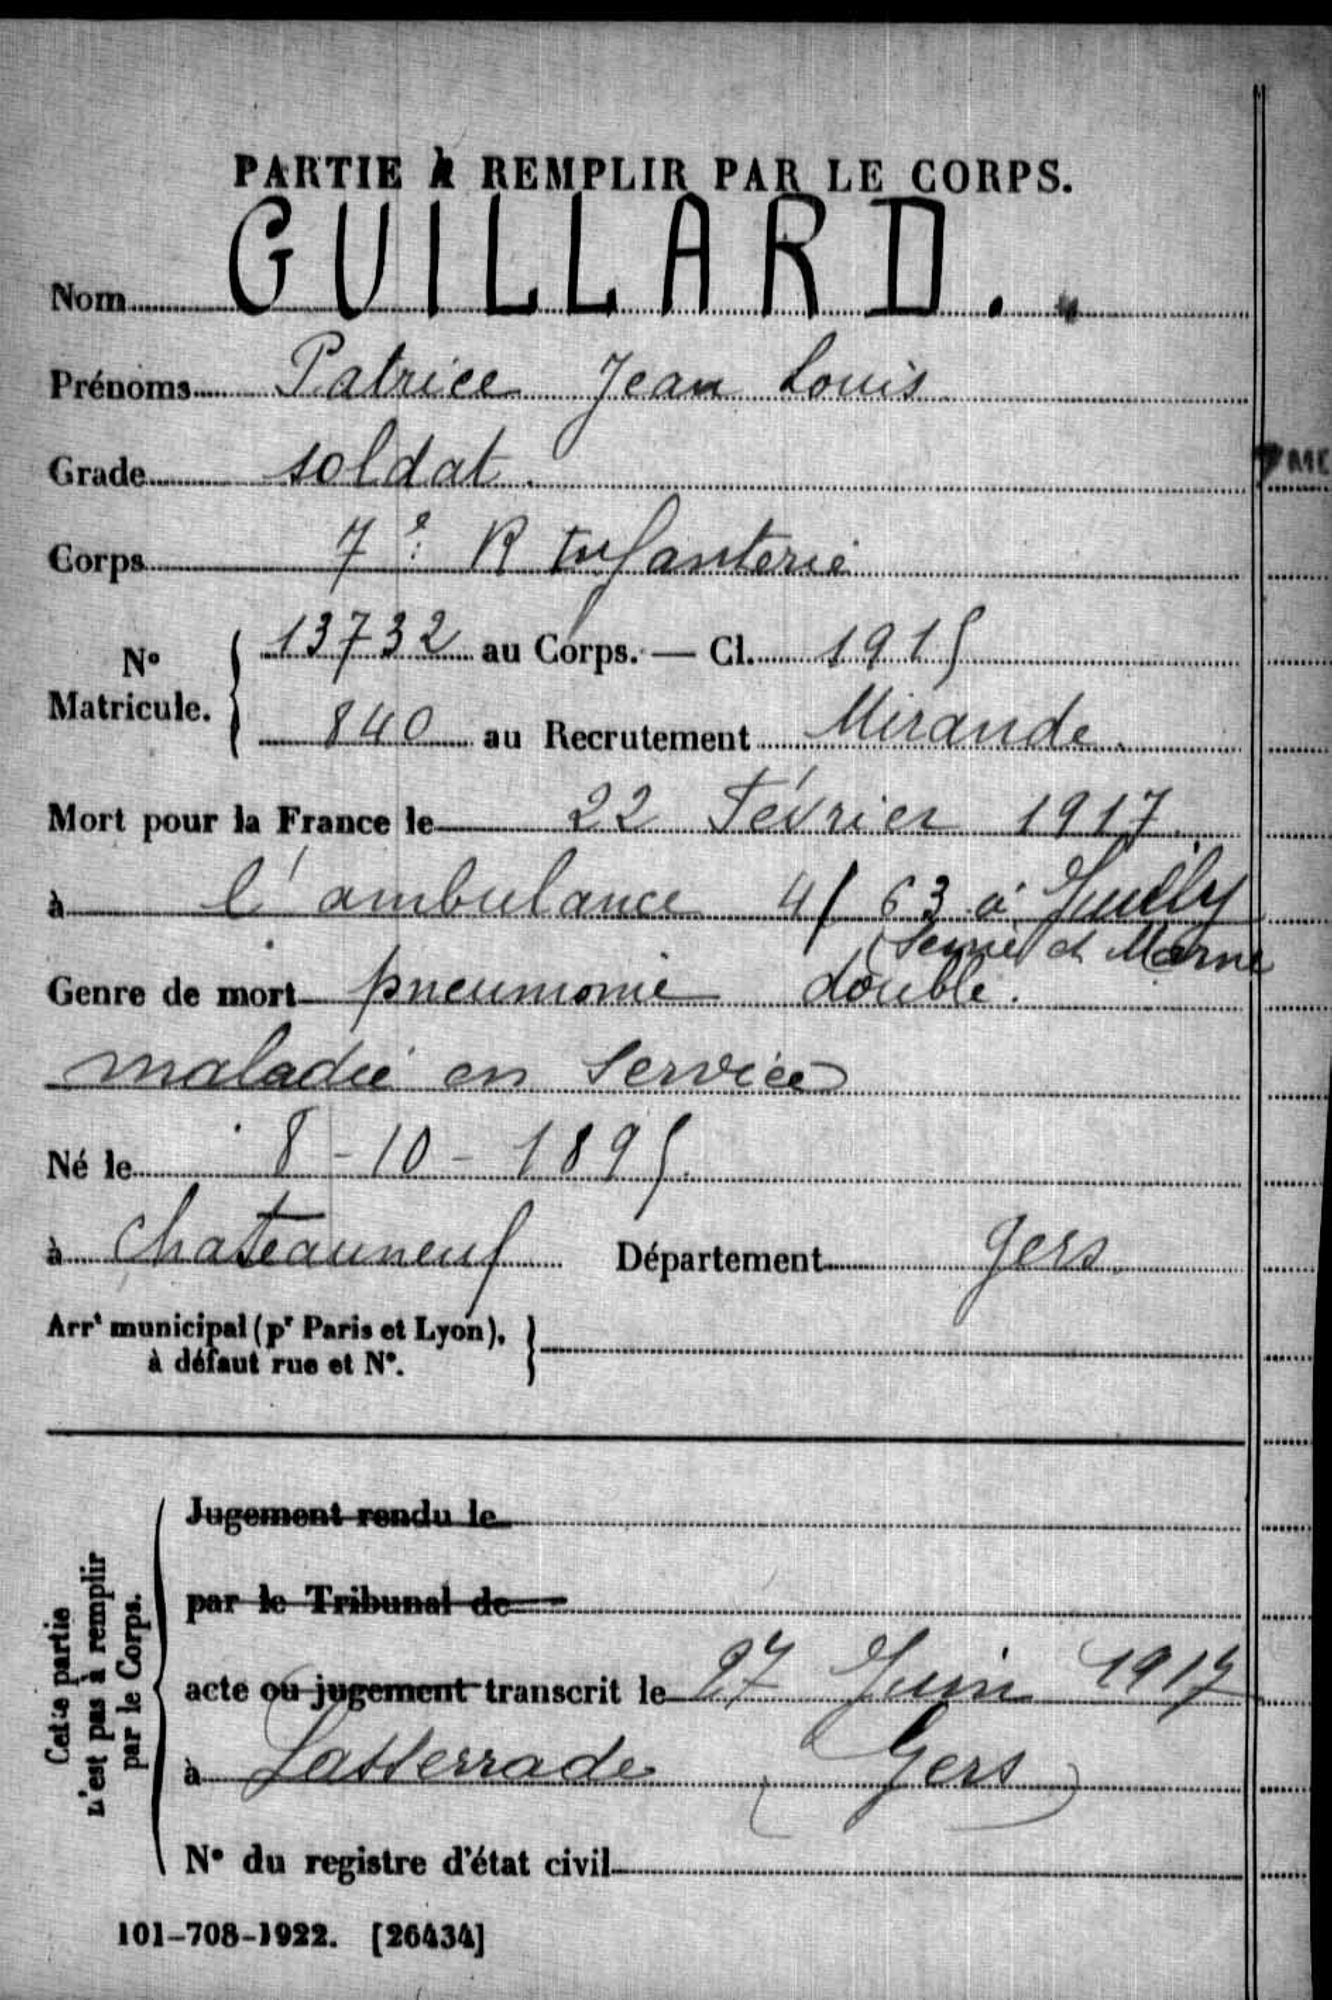 PARTIE À REMPLIR PAR LE CORPS.
Nom GUILLARD.
Prénoms Patrice Jean Louis
Grade soldat.
Corps 7e R Infanterie
N° Matricule. { 13732 au Corps. — Cl. 1915
840 au Recrutement Mirande.
Mort pour la France le 22 Février 1917.
à l'ambulance 4/63 à Juilly
(Seine et Marne
Genre de mort pneumonie double.
maladie en service
Né le 8-10-1895.
à Chateauneuf Département Gers.
Arrt municipal (pr Paris et Lyon),
à défaut rue et N°.
Cette partie
n'est pas à remplir
par le Corps.
Jugement rendu le
par le Tribunal de
acte ou jugement transcrit le 27 Juin 1917
à Lasserrade (Gers)
N° du registre d'état civil
101-708-1922. [26434]